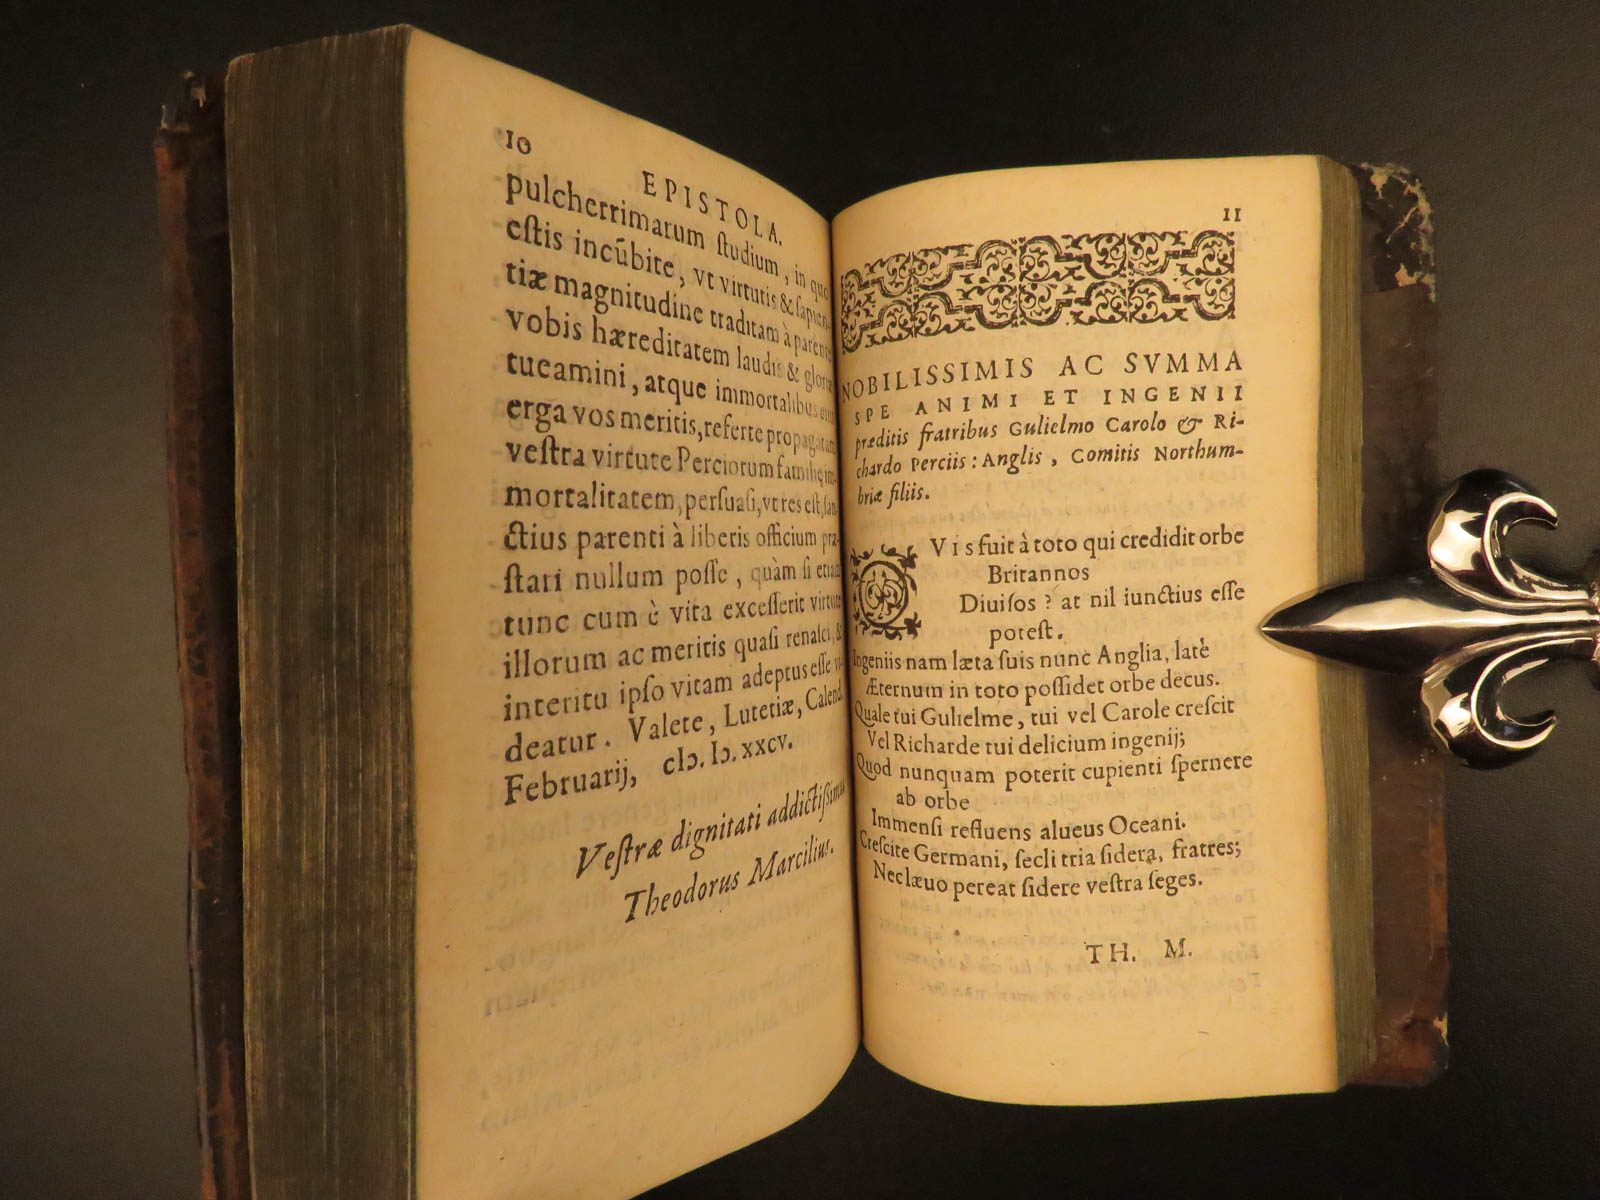 10
EPISTOLA.
pulcherrimarum studium, in quo
estis incūbite, vt virtutis & sapien-
tiæ magnitudine traditam à parente
vobis hæreditatem laudis & gloriæ
tueamini, atque immortalibus eius
erga vos meritis, referte propagatam
vestra virtute Perciorum familię im-
mortalitatem, persuasi, vt res est, san-
ctius parenti à liberis officium præ-
stari nullum posse, quàm si etiam
tunc cum è vita excesserit virtute
illorum ac meritis quasi renasci, &
interitu ipso vitam adeptus esse vi-
deatur. Valete, Lutetiæ, Calend.
Februarij, cIↄ. Iↄ. xxcv.
Vestræ dignitati addictissimus
Theodorus Marcilius.
11
NOBILISSIMIS AC SVMMA
SPE ANIMI ET INGENII
præditis fratribus Gulielmo Carolo & Ri-
chardo Perciis: Anglis, Comitis Northum-
briæ filiis.
QVIS fuit à toto qui credidit orbe
Britannos
Diuisos? at nil iunctius esse
potest.
Ingeniis nam læta suis nunc Anglia, latè
Æternum in toto possidet orbe decus.
Quale tui Gulielme, tui vel Carole crescit
Vel Richarde tui delicium ingenij;
Quod nunquam poterit cupienti spernere
ab orbe
Immensi refluens alueus Oceani.
Crescite Germani, secli tria sidera, fratres;
Nec læuo pereat sidere vestra seges.
TH. M.